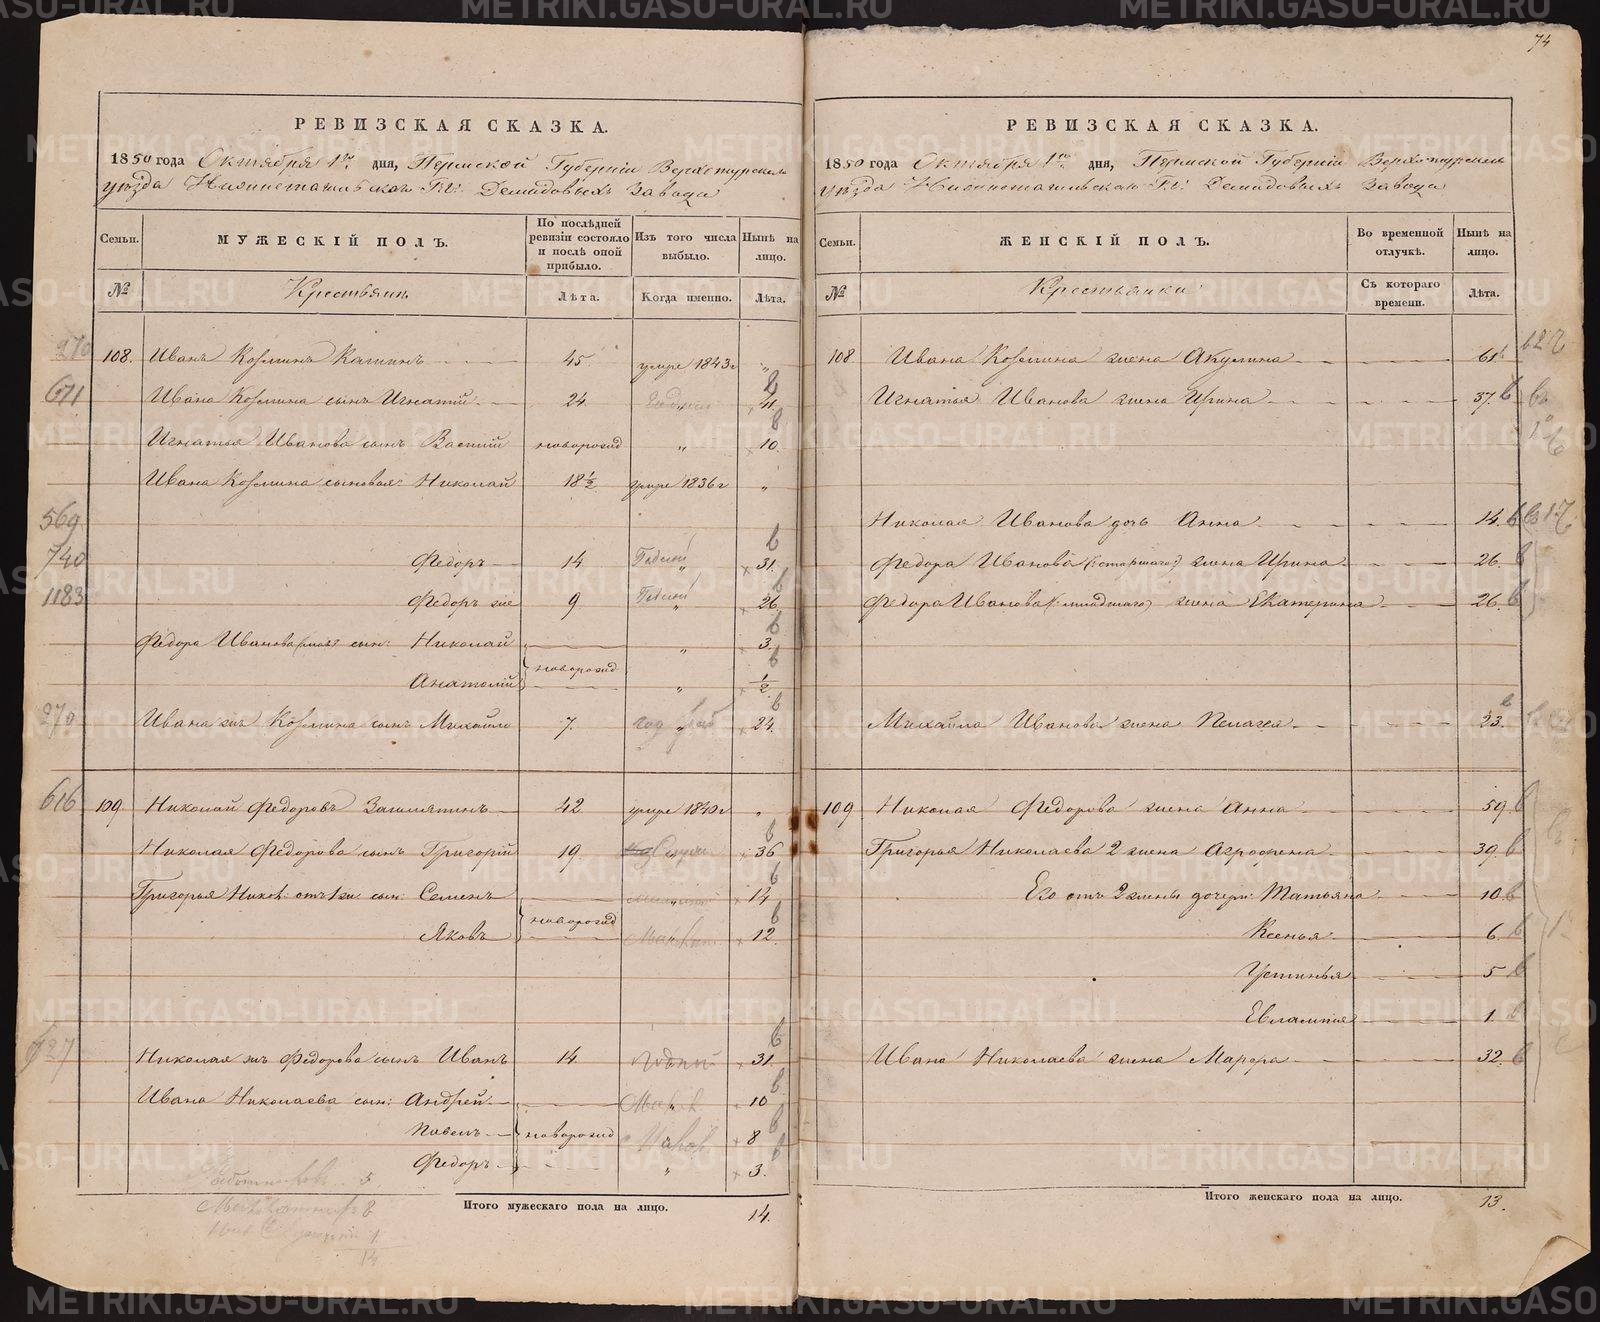 74
РЕВИЗСКАЯ СКАЗКА.
1850 года Октября 1го дня, Пермской Губерніи Верхотурскаго
уѣзда Нижнетагильскаго Гг: Демидовыхъ Завода
Семьи. МУЖЕСКІЙ ПОЛЪ. По послѣдней ревизіи состояло и послѣ оной прибыло. Изъ того числа выбыло. Нынѣ на лицо.
№ Крестьянъ Лѣта. Когда именно. Лѣта.
270 108. Иванъ Козминъ 45. умре 1843 г „
671 Ивана Козмина сынъ Игнатій 24. „ 41.
Игнатья Иванова сынъ Василій новорожд „ 10.
Ивана Козмина сыновья: Николай 18½ умре 1836 г „
569
740 Федоръ 14 „ 31.
1183 Федоръ же 9 „ 26
Федора Иванова сын: Николай новорожд „ 3.
Анатолій „ ½
270 Ивана жъ Козмина сынъ Михайло 7. „ 24.
616 109 Николай Федоровъ 42 умре 1840 г „
Николая Федорова сынъ Григорій 19. „ 36
Григорья Никол: отъ 1 ж: сын: Семенъ новорожд „ 14
Яковъ 12.
Николая жъ Федорова сынъ Иванъ 14. 31.
Ивана Николаева сын: Андрей „ 10
Павелъ новорожд 8
Федоръ „ 3.
5.
8
1.
14
Итого мужескаго пола на лицо. 14.
РЕВИЗСКАЯ СКАЗКА.
1850 года Октября 1го дня, Пермской Губерніи Верхотурскаго
уѣзда Нижнетагильскаго Гг: Демидовыхъ Завода
Семьи. ЖЕНСКІЙ ПОЛЪ. Во временной отлучкѣ. Нынѣ на лицо.
№ Крестьянки Съ котораго времени. Лѣта.
108 Ивана Козмина жена Акулина 61
Игнатья Иванова жена Ирина 37.
Николая Иванова дочь Анна 14.
Федора Иванова (: старшаго :) жена Ирина 26.
Федора Иванова (: младшаго) жена Екатерина 26.
Михайла Иванова жена Пелагея 23.
109 Николая Федорова жена Анна 59
Григорья Николаева 2 жена Агрофена 39.
Его отъ 2 жены дочери: Татьяна 10.
Ксенья 6.
Устинья 5
Евлампия 1.
Ивана Николаева жена Марфа 32.
Итого женскаго пола на лицо. 13.
METRIKI.GASO-URAL.RU